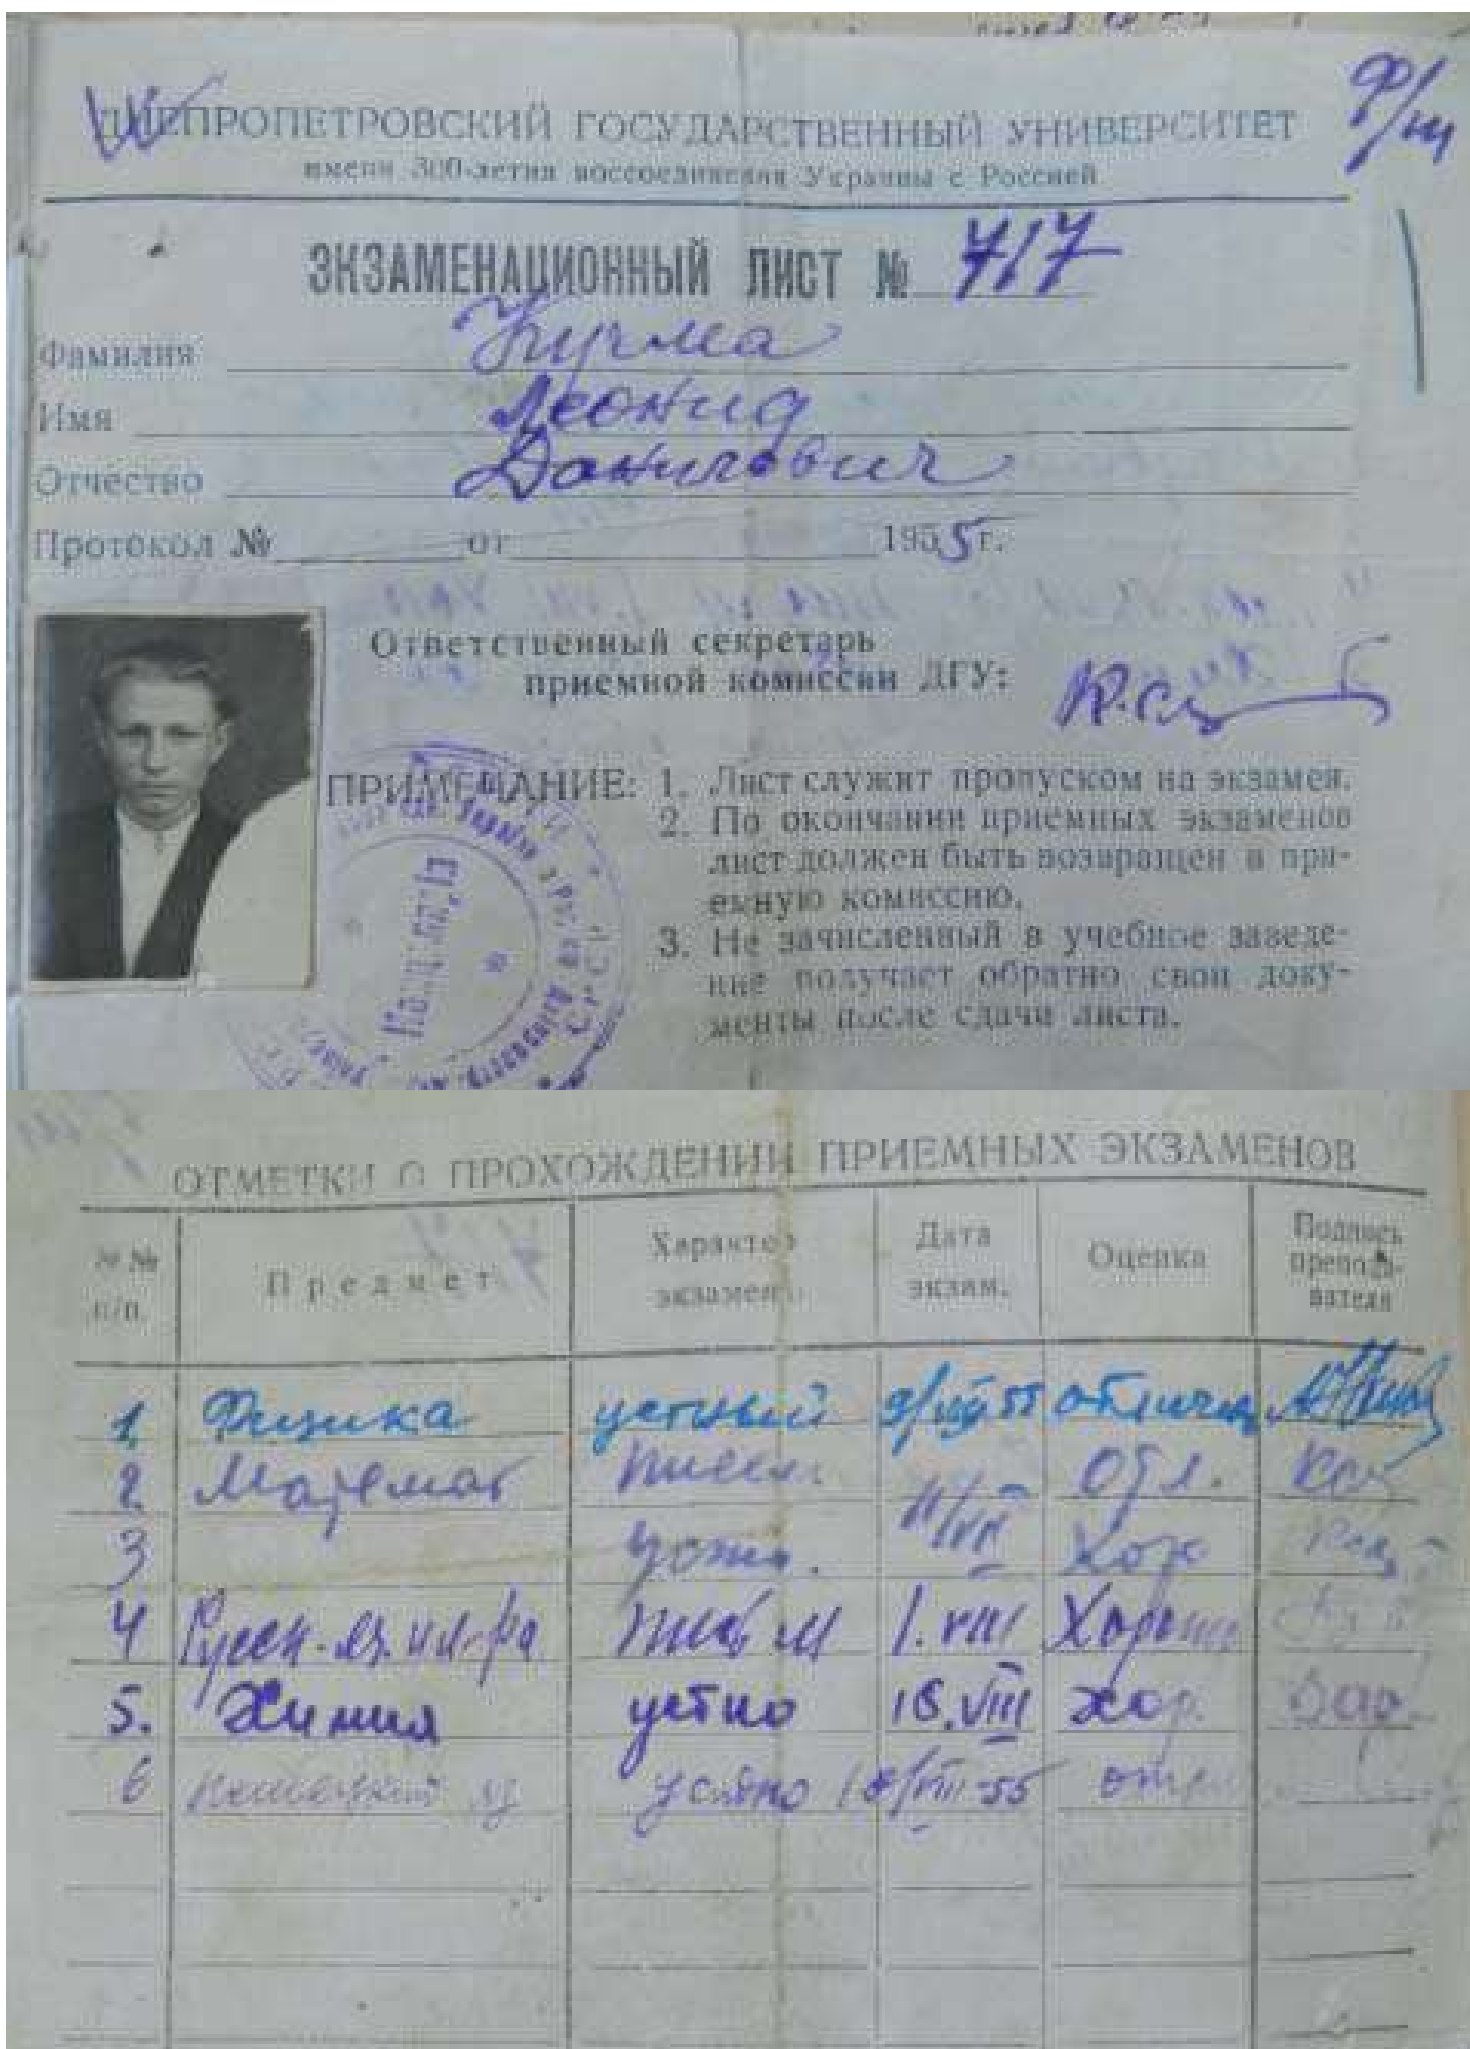 ДНЕПРОПЕТРОВСКИЙ ГОСУДАРСТВЕННЫЙ УНИВЕРСИТЕТ
имени 300-летия воссоединения Украины с Россией
ЭКЗАМЕНАЦИОННЫЙ ЛИСТ № 717
Фамилия Кучма
Имя Леонид
Отчество Данилович
Протокол № от 1955 г.
Ответственный секретарь
приемной комиссии ДГУ:
ПРИМЕЧАНИЕ: 1. Лист служит пропуском на экзамен.
2. По окончании приемных экзаменов
лист должен быть возвращен в при-
емную комиссию.
3. Не зачисленный в учебное заведе-
ние получает обратно свои доку-
менты после сдачи листа.
ОТМЕТКИ О ПРОХОЖДЕНИИ ПРИЕМНЫХ ЭКЗАМЕНОВ
№№ п/п. Предмет Характер экзамена Дата экзам. Оценка Подпись препода-вателя
1. Физика устный 9/VIII 55 отлично
2. Математ письм. Отл.
3 устн. 11/VIII Хор
4 Русск. яз. и л-ра письм 1.VIII Хорошо
5. Химия устно 16.VIII хор.
6 Немецкий яз устно /VIII-55 отл